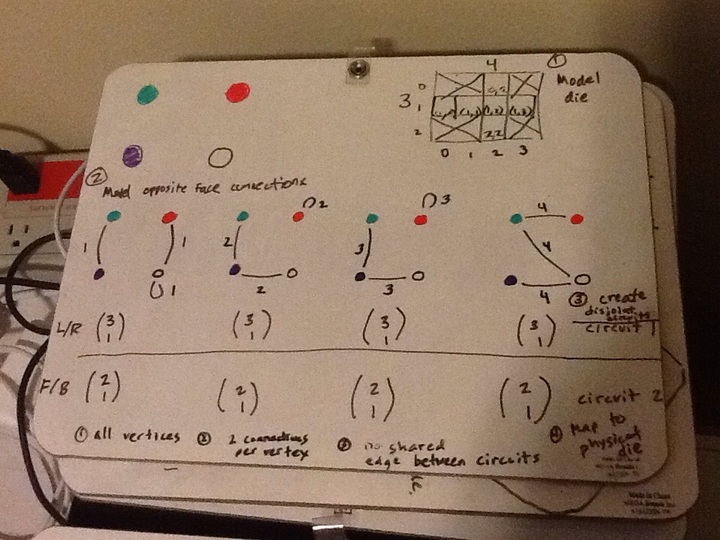 4
①
Model
die
3
0
1
2
0,2
(1,1)
(1,2)
(1,3)
2,2
0 1 2 3
②
Model opposite face connections
1 1 1
2 2 2
3 3 3
4 4 4
③ create
disjoint
circuits
circuit 1
L/R (3 1) (3 1) (3 1) (3 1)
F/B (2 1) (2 1) (2 1) (2 1) circuit 2
① all vertices
② 2 connections
per vertex
③ no shared
edge between circuits
④ map to
physical
die
Made in China